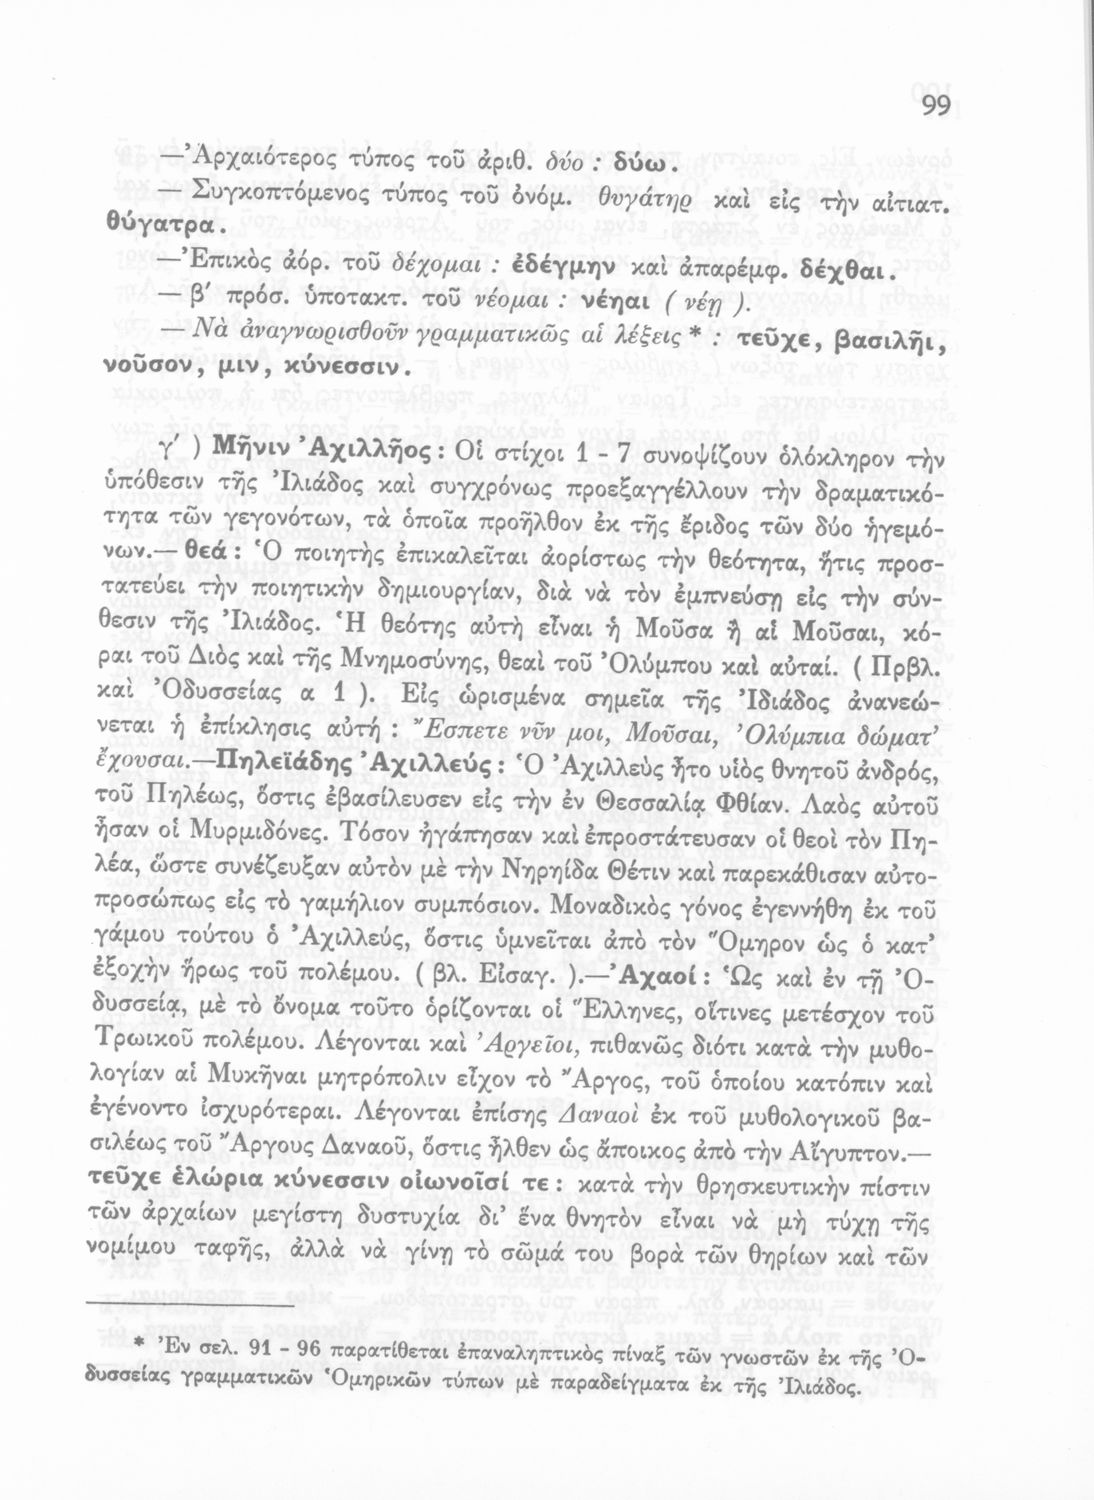 99
—Ἀρχαιότερος τύπος τοῦ ἀριθ. δύο : δύω.
— Συγκοπτόμενος τύπος τοῦ ὀνόμ. θυγάτηρ καὶ εἰς τὴν αἰτιατ.
θύγατρα.
—Ἐπικὸς ἀόρ. τοῦ δέχομαι : ἐδέγμην καὶ ἀπαρέμφ. δέχθαι.
— β′ πρόσ. ὑποτακτ. τοῦ νέομαι : νέηαι ( νέῃ ).
— Νὰ ἀναγνωρισθοῦν γραμματικῶς αἱ λέξεις * : τεῦχε, βασιλῆι,
νοῦσον, μιν, κύνεσσιν.
γ′ ) Μῆνιν Ἀχιλλῆος : Οἱ στίχοι 1 - 7 συνοψίζουν ὁλόκληρον τὴν
ὑπόθεσιν τῆς Ἰλιάδος καὶ συγχρόνως προεξαγγέλλουν τὴν δραματικό-
τητα τῶν γεγονότων, τὰ ὁποῖα προῆλθον ἐκ τῆς ἔριδος τῶν δύο ἡγεμό-
νων.— θεά : Ὁ ποιητὴς ἐπικαλεῖται ἀορίστως τὴν θεότητα, ἥτις προσ-
τατεύει τὴν ποιητικὴν δημιουργίαν, διὰ νὰ τὸν ἐμπνεύσῃ εἰς τὴν σύν-
θεσιν τῆς Ἰλιάδος. Ἡ θεότης αὐτὴ εἶναι ἡ Μοῦσα ἢ αἱ Μοῦσαι, κό-
ραι τοῦ Διὸς καὶ τῆς Μνημοσύνης, θεαὶ τοῦ Ὀλύμπου καὶ αὐταί. ( Πρβλ.
καὶ Ὀδυσσείας α 1 ). Εἰς ὡρισμένα σημεῖα τῆς Ἰδιάδος ἀνανεώ-
νεται ἡ ἐπίκλησις αὐτή : Ἔσπετε νῦν μοι, Μοῦσαι, Ὀλύμπια δώματ’
ἔχουσαι.—Πηλεϊάδης Ἀχιλλεύς : Ὁ Ἀχιλλεὺς ἦτο υἱὸς θνητοῦ ἀνδρός,
τοῦ Πηλέως, ὅστις ἐβασίλευσεν εἰς τὴν ἐν Θεσσαλίᾳ Φθίαν. Λαὸς αὐτοῦ
ἦσαν οἱ Μυρμιδόνες. Τόσον ἠγάπησαν καὶ ἐπροστάτευσαν οἱ θεοὶ τὸν Πη-
λέα, ὥστε συνέζευξαν αὐτὸν μὲ τὴν Νηρηίδα Θέτιν καὶ παρεκάθισαν αὐτο-
προσώπως εἰς τὸ γαμήλιον συμπόσιον. Μοναδικὸς γόνος ἐγεννήθη ἐκ τοῦ
γάμου τούτου ὁ Ἀχιλλεύς, ὅστις ὑμνεῖται ἀπὸ τὸν Ὅμηρον ὡς ὁ κατ’
ἐξοχὴν ἥρως τοῦ πολέμου. ( βλ. Εἰσαγ. ).—Ἀχαοί : Ὡς καὶ ἐν τῇ Ὀ-
δυσσείᾳ, μὲ τὸ ὄνομα τοῦτο ὁρίζονται οἱ Ἕλληνες, οἵτινες μετέσχον τοῦ
Τρωικοῦ πολέμου. Λέγονται καὶ Ἀργεῖοι, πιθανῶς διότι κατὰ τὴν μυθο-
λογίαν αἱ Μυκῆναι μητρόπολιν εἶχον τὸ Ἄργος, τοῦ ὁποίου κατόπιν καὶ
ἐγένοντο ἰσχυρότεραι. Λέγονται ἐπίσης Δαναοὶ ἐκ τοῦ μυθολογικοῦ βα-
σιλέως τοῦ Ἄργους Δαναοῦ, ὅστις ἦλθεν ὡς ἄποικος ἀπὸ τὴν Αἴγυπτον.—
τεῦχε ἑλώρια κύνεσσιν οἰωνοῖσί τε : κατὰ τὴν θρησκευτικὴν πίστιν
τῶν ἀρχαίων μεγίστη δυστυχία δι’ ἕνα θνητὸν εἶναι νὰ μὴ τύχῃ τῆς
νομίμου ταφῆς, ἀλλὰ νὰ γίνῃ τὸ σῶμά του βορὰ τῶν θηρίων καὶ τῶν
* Ἐν σελ. 91 - 96 παρατίθεται ἐπαναληπτικὸς πίναξ τῶν γνωστῶν ἐκ τῆς Ὀ-
δυσσείας γραμματικῶν Ὁμηρικῶν τύπων μὲ παραδείγματα ἐκ τῆς Ἰλιάδος.